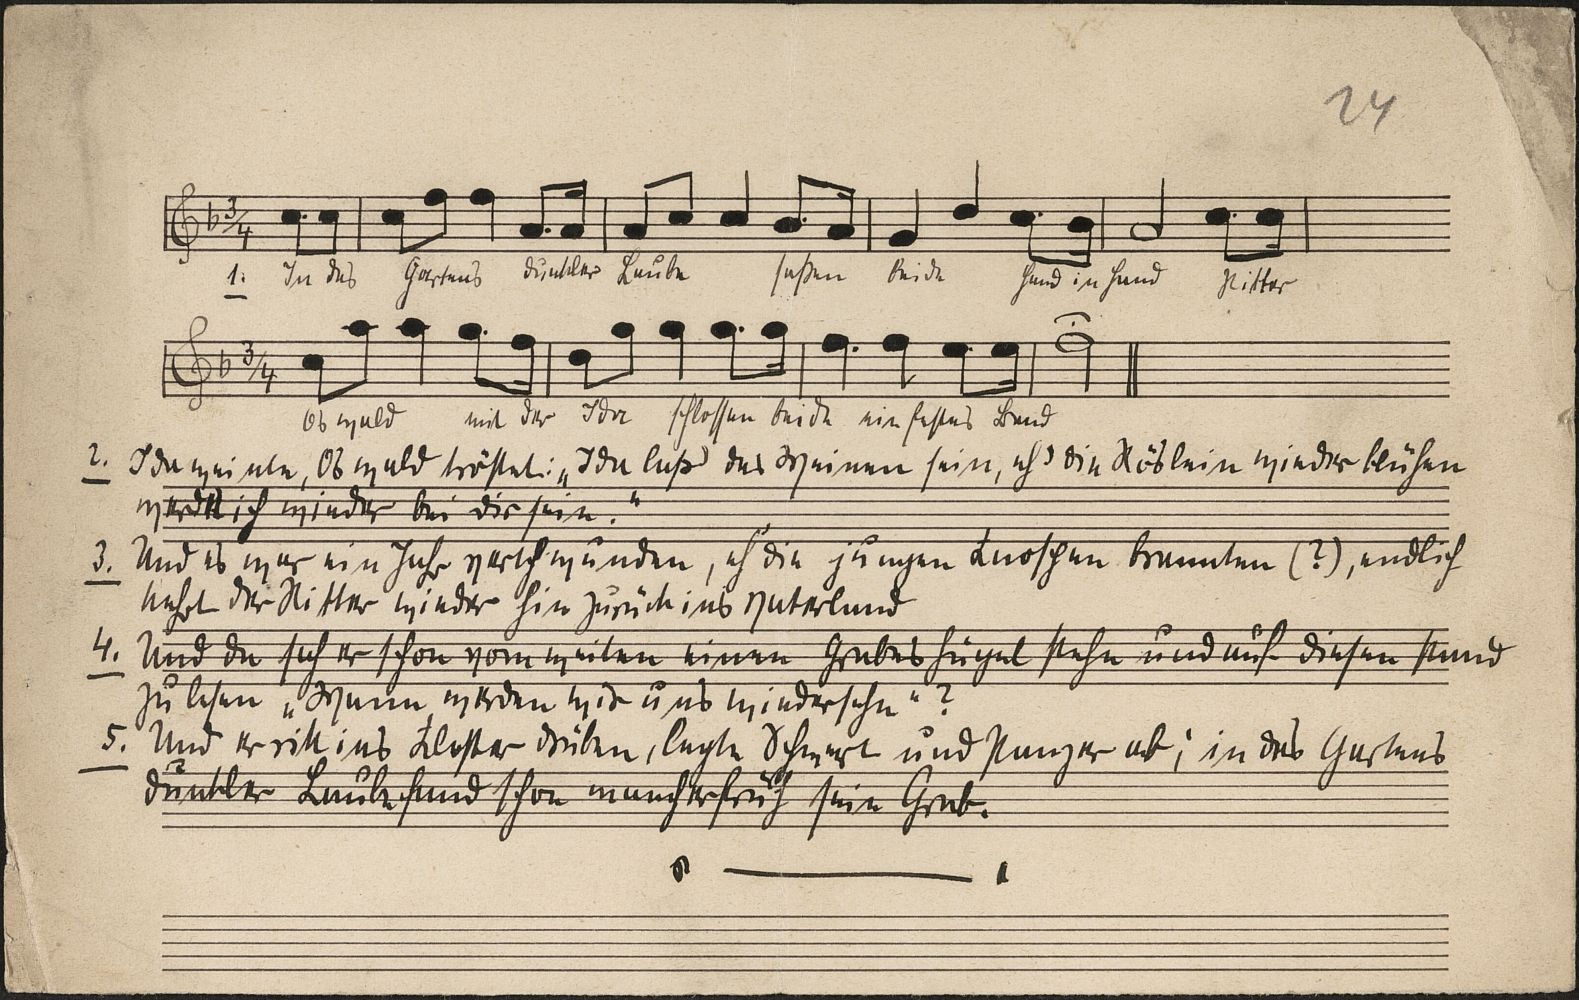 24
3/4
1. In des Gartens dunkler Laube saßen beide Hand in Hand Ritter
3/4
Oswald mit der Ida schlossen beide ein festes Band
2. Ida weinte, Oswald tröstet: „Ida lass' das Weinen sein, eh' die Röslein wieder blühen
werde ich wieder bei dir sein."
3. Und es war ein Jahr verschwunden, eh' die jungen Knospen brannten (?), endlich
kehrt der Ritter wieder hin zurück ins Vaterland
4. Und da sah er schon vom weiten einen Grabeshügel stehn und auf diesen stand
zu lesen „Wann werden wir uns wiedersehn"?
5. Und er ritt ins Kloster drüben, legte Schwert und Panzer ab; in des Gartens
dunkler Laube fand schon mancher früh sein Grab.